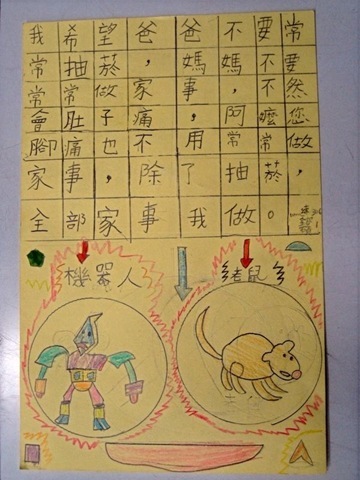 我希望爸爸不要常
常抽菸，媽媽不要
常常做家事，不然
會肚子痛，阿麼您
腳痛也不用常常做
家事，除了抽菸，
全部家事我做。
機器人
鼠